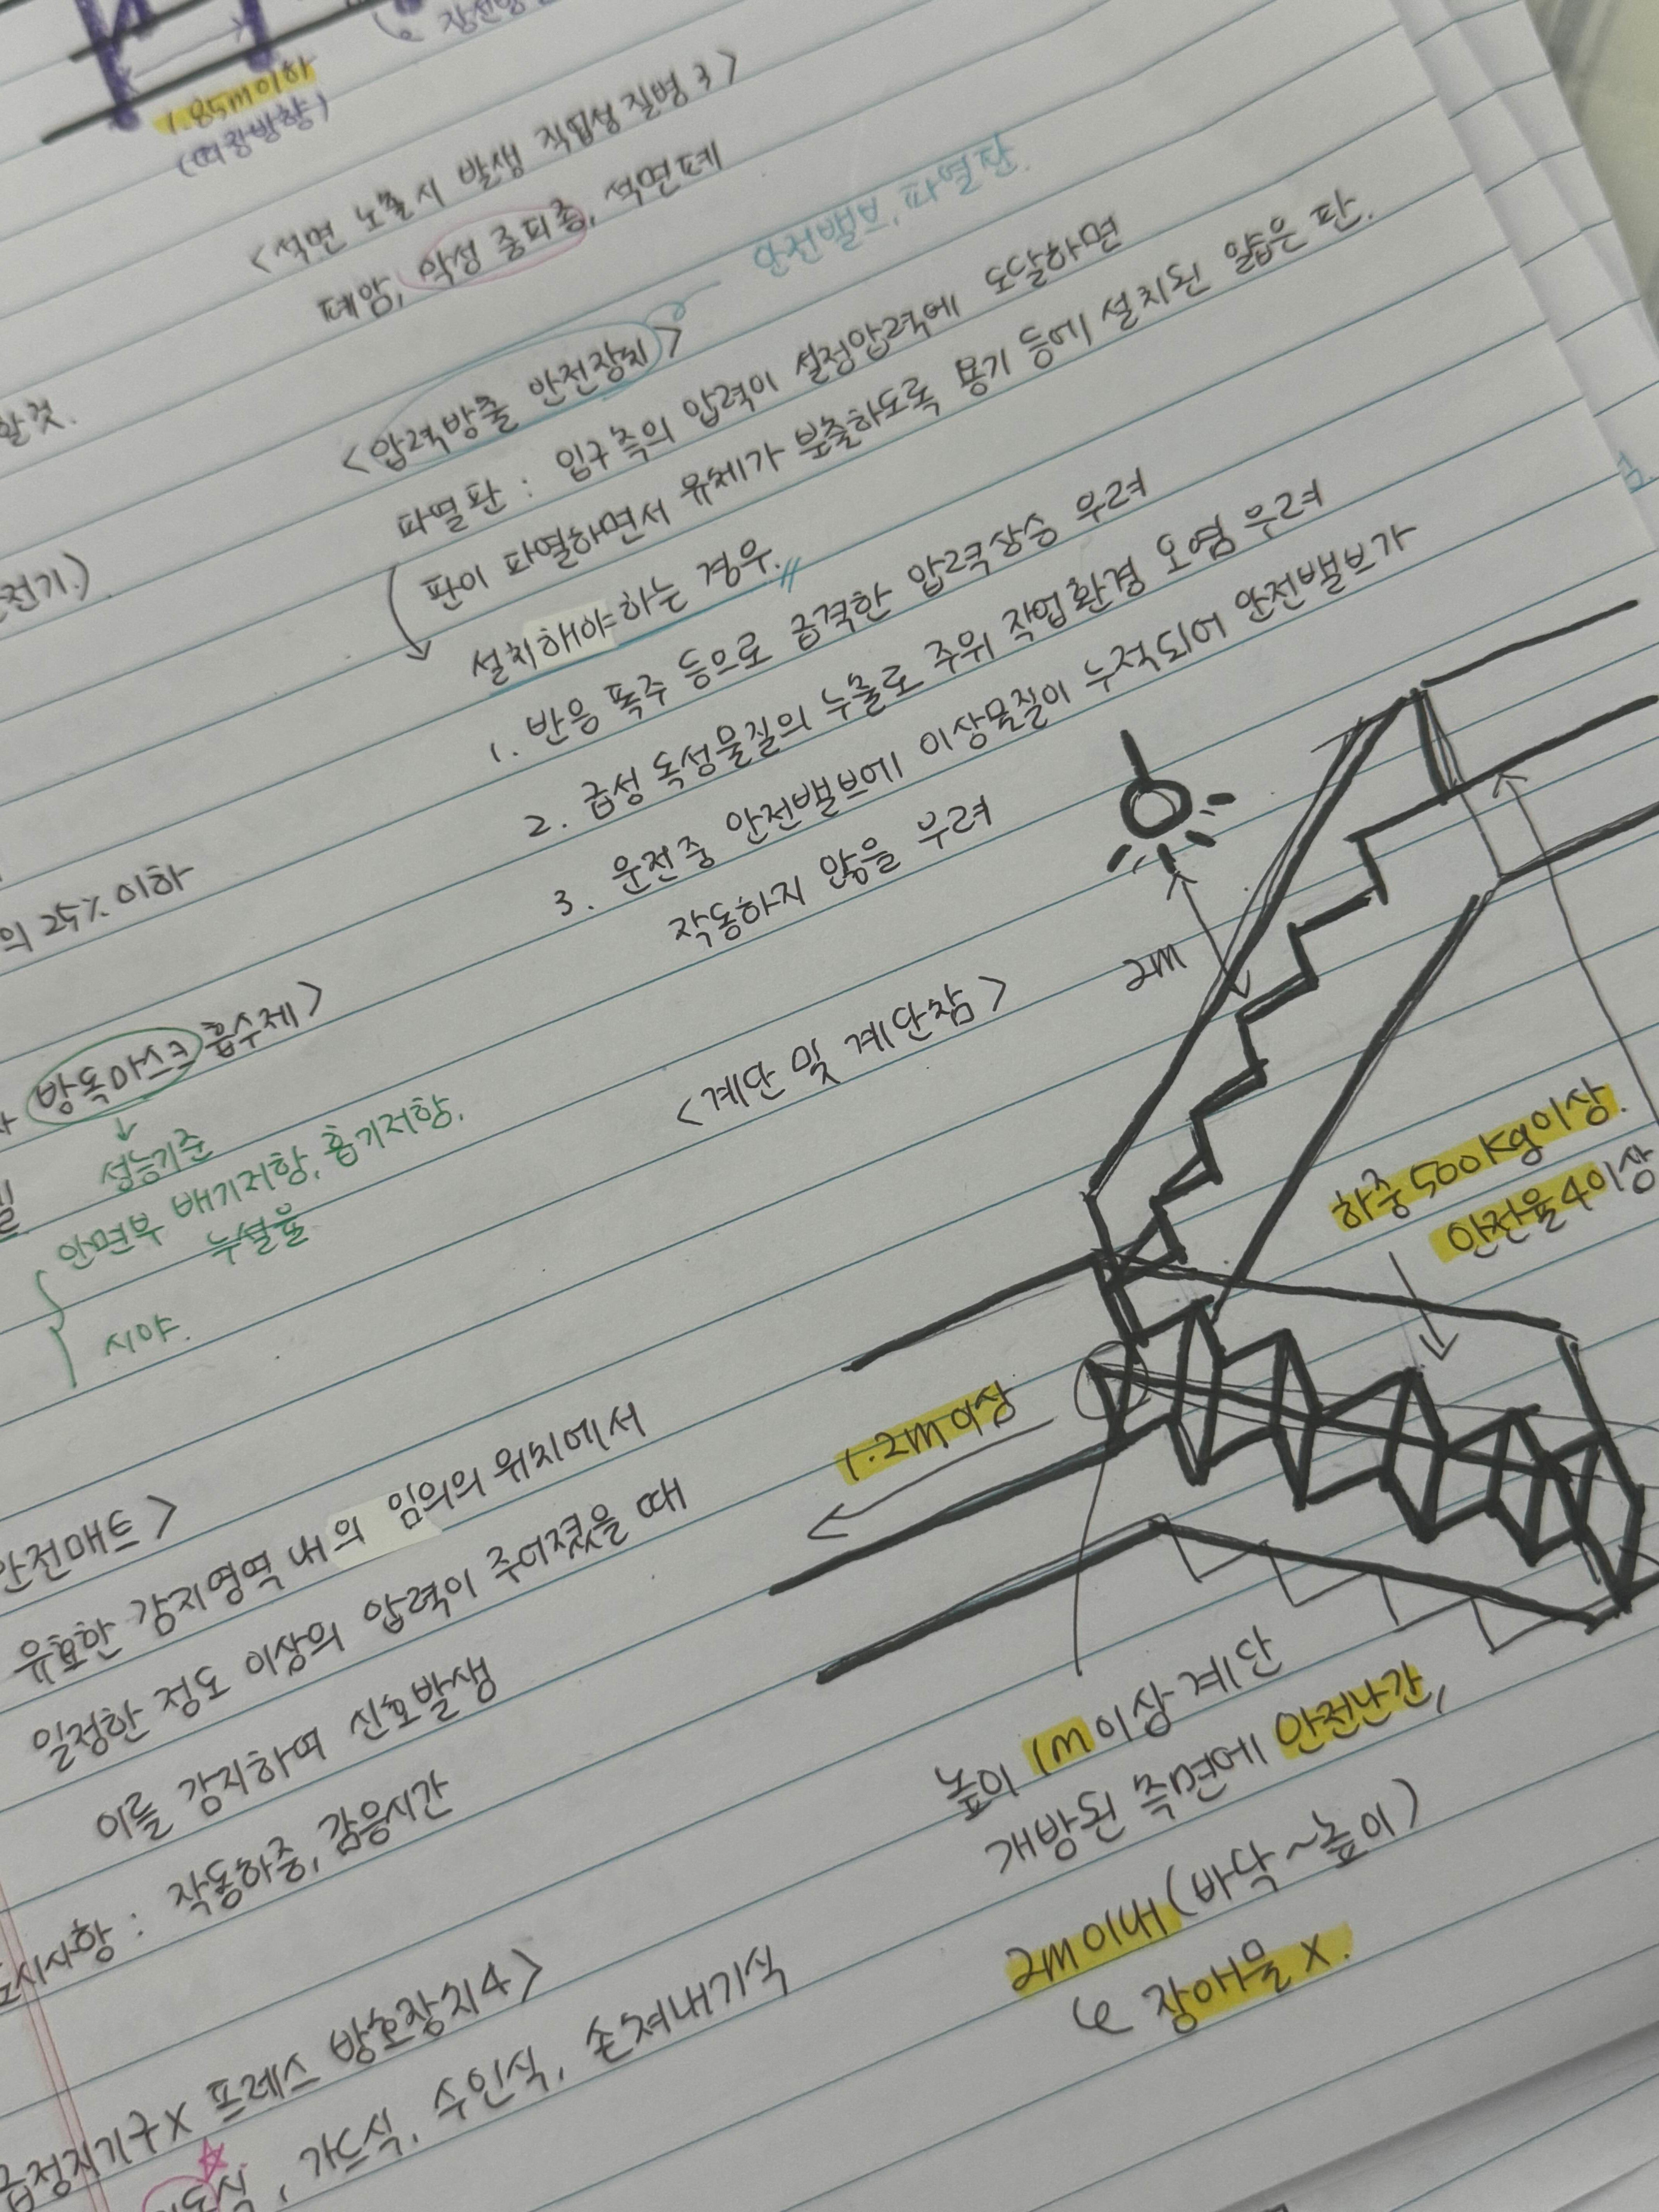 1.85m이하
(띠장방향)
<석면 노출시 발생 직업성 질병 3>
폐암, 악성 중피종, 석면폐
<압력방출 안전장치>
안전밸브, 파열판.
파열판 : 입구측의 압력이 설정압력에 도달하면
판이 파열하면서 유체가 분출하도록 용기 등에 설치된 얇은 판.
설치해야 하는 경우.
1. 반응 폭주 등으로 급격한 압력상승 우려
2. 급성 독성물질의 누출로 주위 작업환경 오염 우려
3. 운전중 안전밸브에 이상물질이 누적되어 안전밸브가
작동하지 않을 우려
<계단 및 계단참>
2m
하중 500kg이상.
안전율 4이상
1.2m이상
높이 1m이상 계단
개방된 측면에 안전난간,
2m이내 (바닥~높이)
장애물 X.
할것.
전기.)
의 25% 이하
방독마스크 흡수제>
성능기준
안면부 배기저항, 흡기저항.
누설율
시야.
안전매트>
유효한 감지영역 내의 임의의 위치에서
일정한 정도 이상의 압력이 주어졌을 때
이를 감지하여 신호발생
표시사항 : 작동하중, 감응시간
급정지기구X 프레스 방호장치4>
, 가드식, 수인식, 손쳐내기식